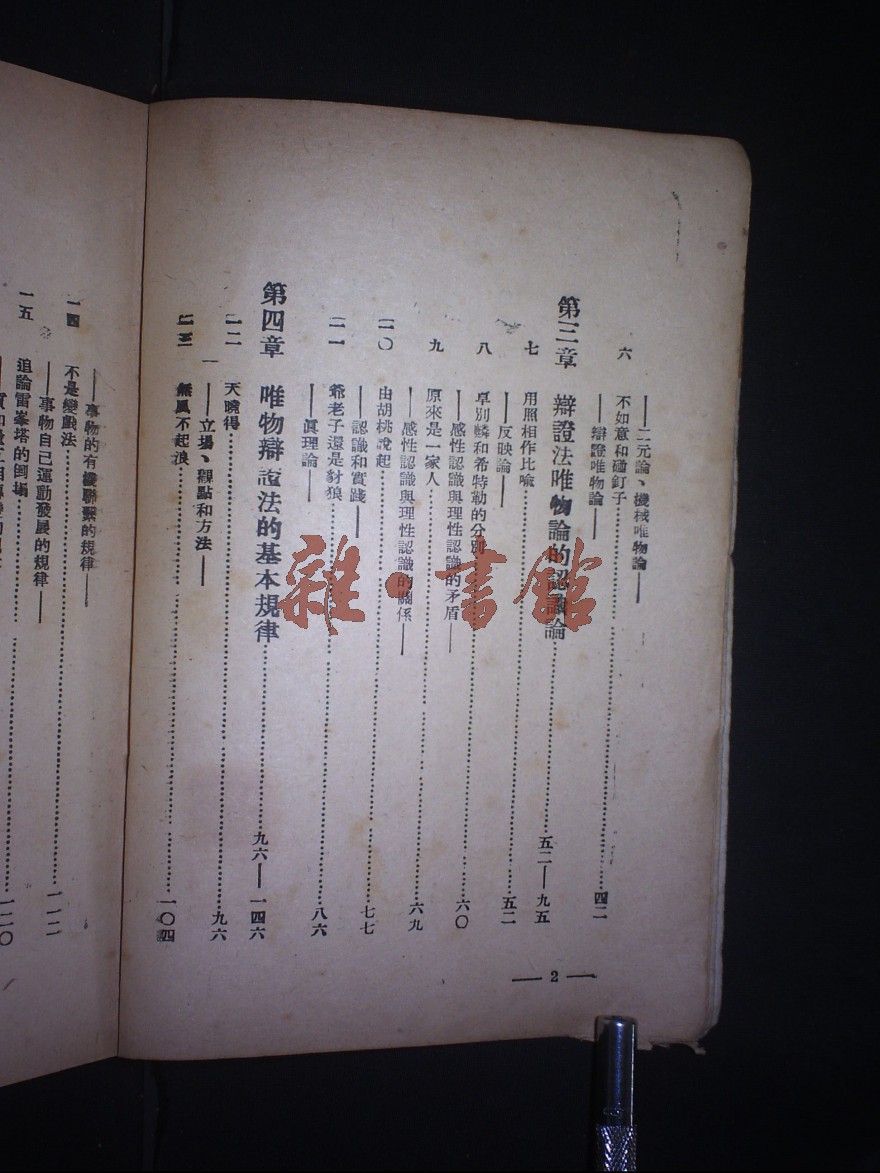 ——二元論、機械唯物論——
六 不如意和碰釘子…………四二
——辯證唯物論——
第三章 辯證法唯物論的認識論…………五二——九五
七 用照相作比喻…………五二
——反映論——
八 卓別麟和希特勒的分別…………六〇
——感性認識與理性認識的矛盾——
九 原來是一家人…………六九
——感性認識與理性認識的關係——
一〇 由胡桃說起…………七七
——認識和實踐——
一一 爺老子還是豺狼…………八六
——眞理論——
第四章 唯物辯證法的基本規律…………九六——一四六
一二 天曉得…………九六
——立場、觀點和方法——
一三 無風不起浪…………一〇四
——事物的有機聯繫的規律——
一四 不是變戲法…………一一二
——事物自己運動發展的規律——
一五 追論雷峯塔的倒塌…………一二〇
— 2 —
雜·書館